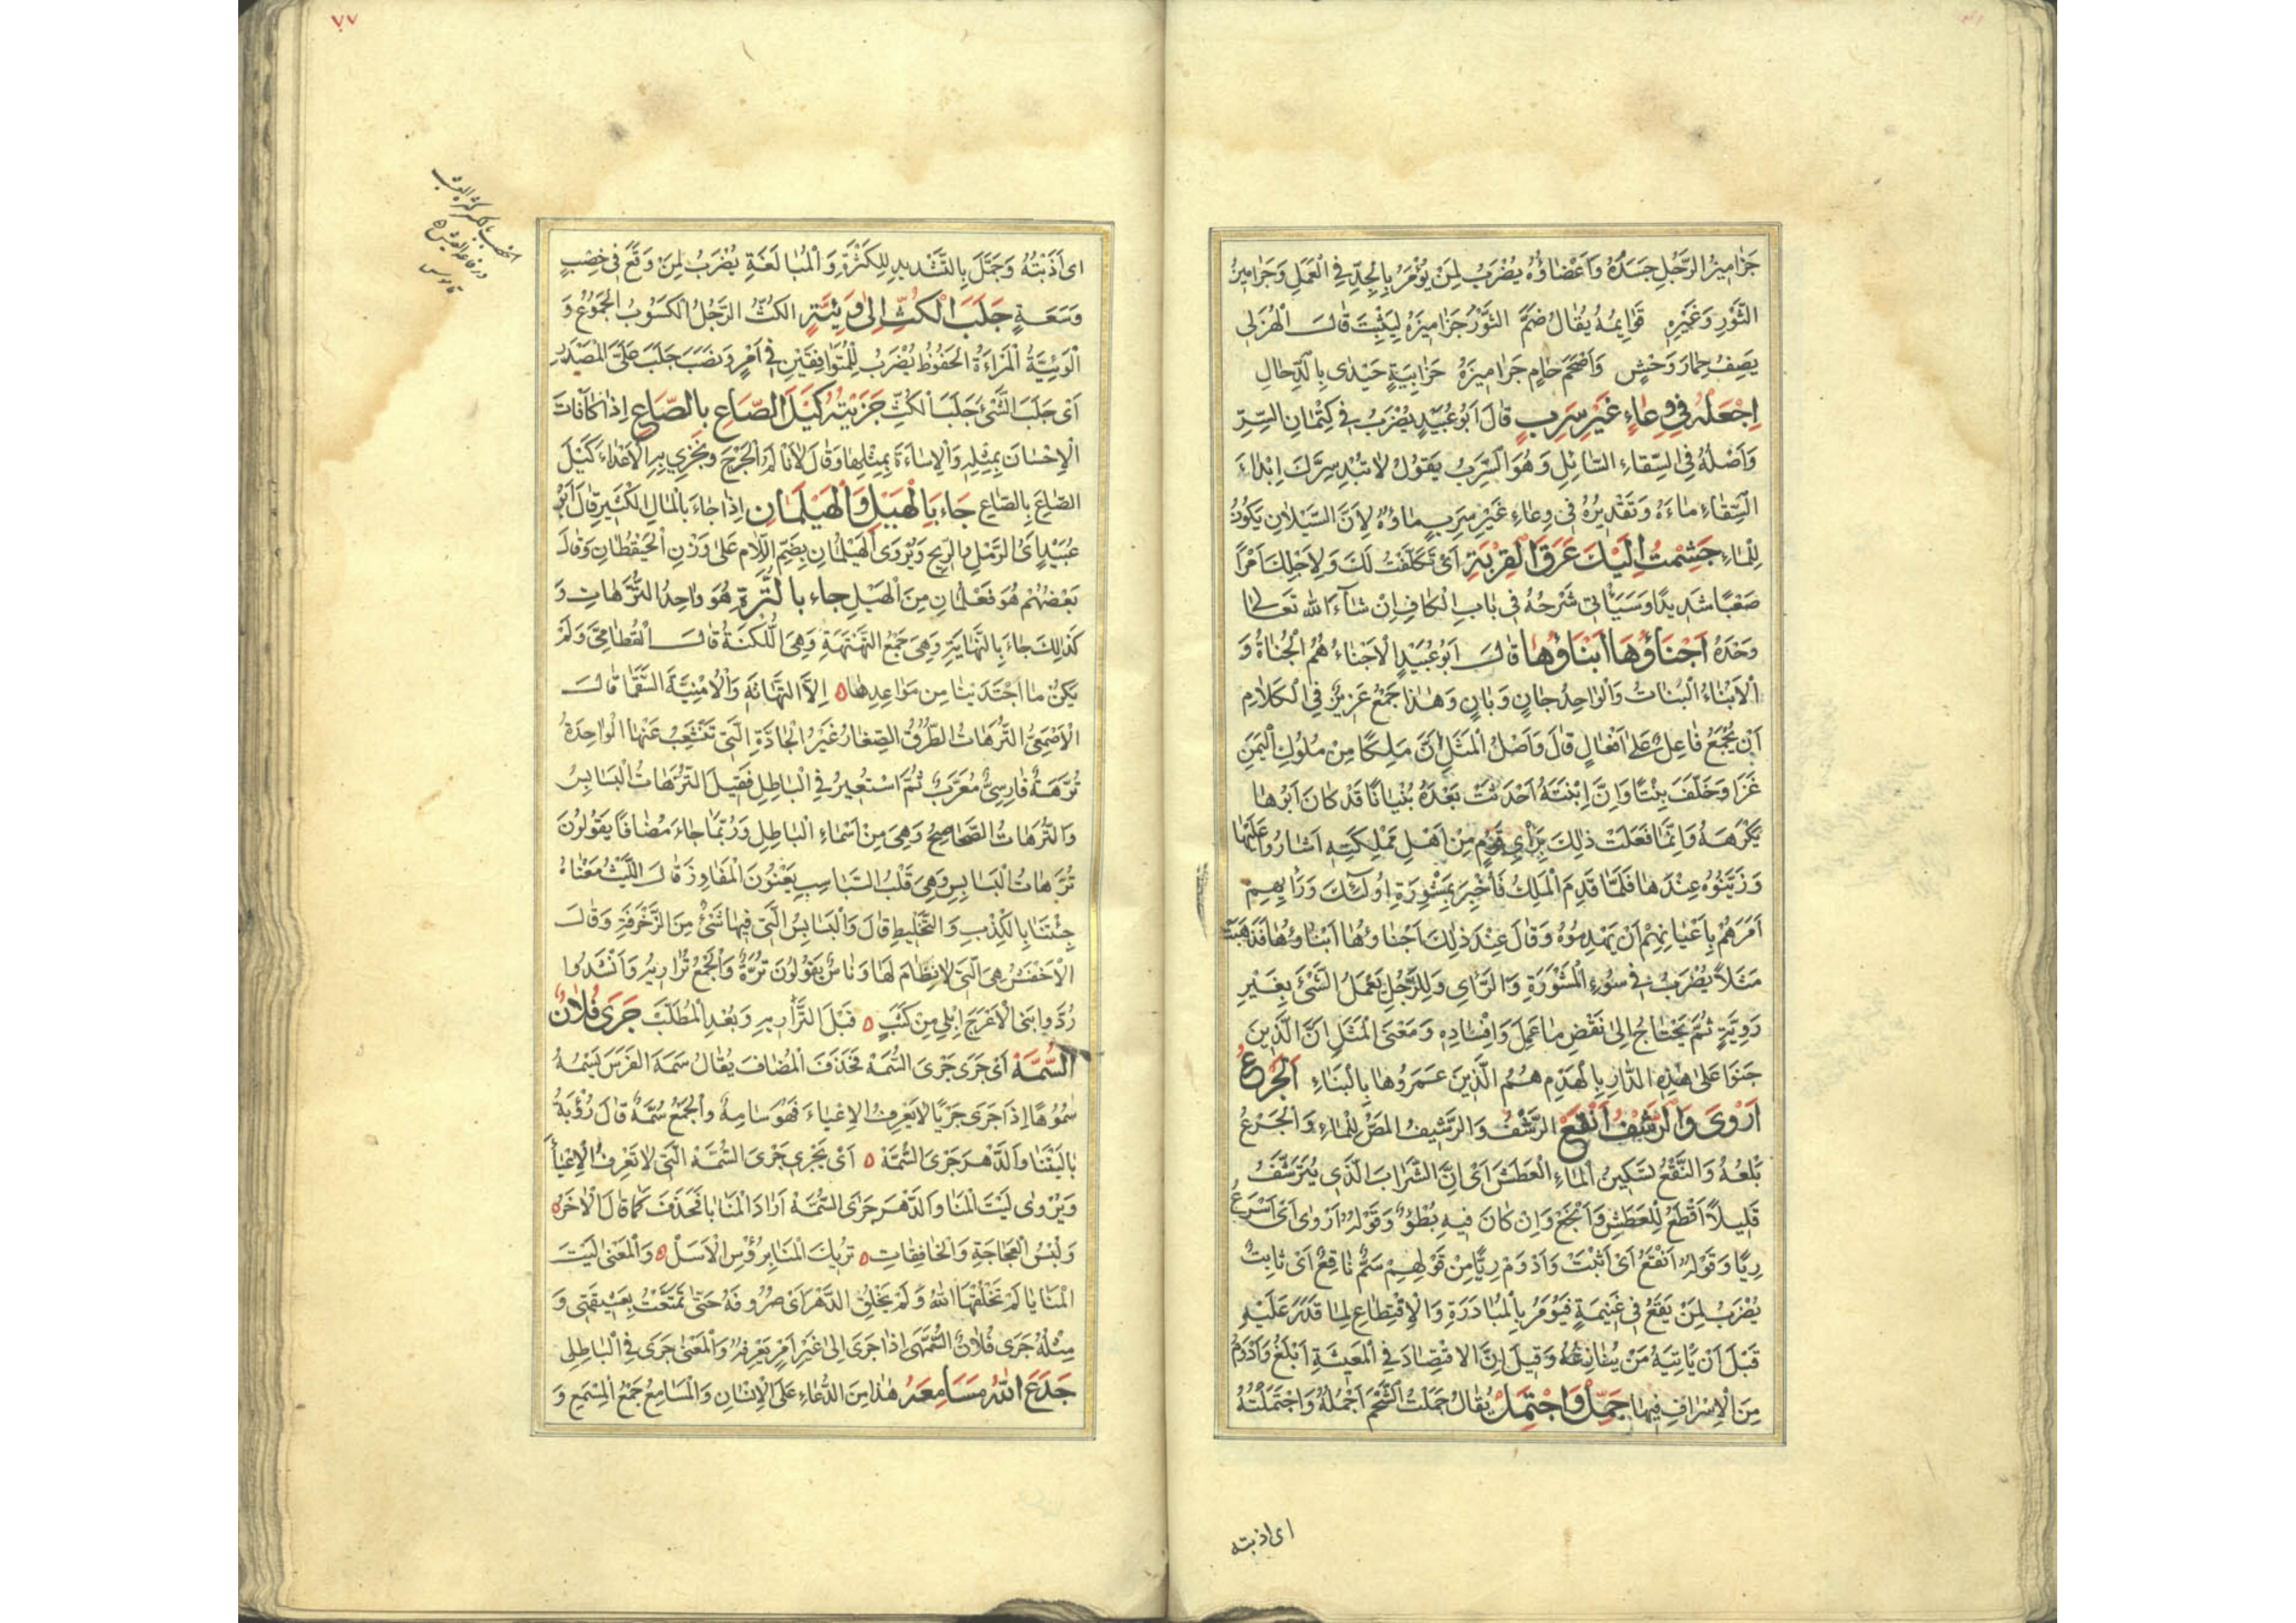 جَرٰاميزُ الرَّجُلِ جَسَدُهُ وَاَعْضٰاؤُهُ يُضْرَبُ لِمَنْ يُؤْمَرُ بِالْجِدِّ فِي الْعَمَلِ وَجَرٰاميزُ
الثَّوْرِ وَغَيْرِهِ قَوٰايِمُهُ يُقٰالُ ضَمَّ الثَّوْرُ جَرٰاميزَهُ لِيَثِبَ قٰالَ الْهُزَلى
يَصِفُ حِمارَ وَحْشٍ وَاَصْحَمَ حٰامٍ جَرٰاميزَهُ حَزٰابِيَةٍ حَيَدٰى بِالدِّحٰالِ
اِجْعَلْهُ فِي وِعٰاءٍ غَيْرِ سَرِبٍ قالَ اَبُو عُبَيْدٍ يُضْرَبُ فى كِتْمٰانِ السِّرِّ
وَاَصْلُهُ فِى السِّقٰاءِ السّٰائِلِ وَهُوَ السَّرِبُ يَقُولُ لٰا تُبْدِ سِرَّكَ اِبْدٰاءَ
السِّقٰاءِ مٰاءَهُ وَتَقْديرُهُ فى وِعٰاءٍ غَيْرِ سَرِبٍ مٰاؤُهُ لِاَنَّ السَّيَلٰانَ يَكُونُ
لِلْمٰاءِ جَشِمْتُ اِلَيْكَ عَرَقَ الْقِرْبَةِ اَىْ تَكَلَّفْتُ لَكَ وَلِاَجْلِكَ اَمْرًا
صَعْبًا شَديدًا وَسَيَأْتى شَرْحُهُ فى بٰابِ الْكٰافِ اِنْ شٰاءَ اللّٰهُ تَعٰالىٰ
وَحْدَهُ اَجْنٰاؤُهٰا اَبْنٰاؤُهٰا قٰالَ اَبُو عُبَيْدٍ الْاَجْنٰاءُ هُمُ الْجُنٰاةُ وَ
الْاَبْنٰاءُ الْبُنٰاتُ وَالْوٰاحِدُ جٰانٍ وَبٰانٍ وَهٰذٰا جَمْعٌ عَزيزٌ فِى الْكَلٰامِ
اَنْ يُجْمَعَ فٰاعِلٌ عَلىٰ اَفْعٰالٍ قٰالَ وَاَصْلُ الْمَثَلِ اَنَّ مَلِكًا مِنْ مُلُوكِ الْيَمَنِ
غَزٰا وَخَلَّفَ بِنْتًا وَاِنَّ اِبْنَتَهُ اَحْدَثَتْ بَعْدَهُ بُنْيٰانًا قَدْ كٰانَ اَبُوهٰا
يَكْرَهُهُ وَاِنَّمٰا فَعَلَتْ ذٰلِكَ بِرَأْىِ قَوْمٍ مِنْ اَهْلِ مَمْلِكَتِهِ اَشٰارُوا عَلَيْهٰا
وَزَيَّنُوهُ عِنْدَهٰا فَلَمّٰا قَدِمَ الْمَلِكُ فَاُخْبِرَ بِمَشْوِرَةِ اُولٰئِكَ وَرَأْيِهِمْ
اَمَرَهُمْ بِاَعْيٰانِهِمْ اَنْ يَهْدِمُوهُ وَقٰالَ عِنْدَ ذٰلِكَ اَجْنٰاؤُهٰا اَبْنٰاؤُهٰا فَذَهَبَتْ
مَثَلًا يُضْرَبُ فى سُوءِ الْمَشْوَرَةِ وَالرَّاىِ وَلِلرَّجُلِ يَعْمَلُ الشَّىْءَ بِغَيْرِ
رَوِيَّةٍ ثُمَّ يَحْتٰاجُ اِلىٰ نَقْضِ مٰا عَمِلَ وَاِفْسٰادِهِ وَمَعْنَى الْمَثَلِ اِنَّ الَّذينَ
جَنَوْا عَلىٰ هٰذِهِ الدّٰارِ بِالْهَدْمِ هُمُ الَّذينَ عَمَرُوهٰا بِالْبِنٰاءِ اَلْجَرْعُ
اَرْوىٰ وَالرَّشْفُ اَنْقَعُ الرَّشْفُ وَالرَّشيفُ الْمَصُّ لِلْمٰاءِ وَالْجَرْعُ
بَلْعُهُ وَالنَّقْعُ تَسْكينُ الْمٰاءِ الْعَطَشَ اَىْ اِنَّ الشَّرٰابَ الَّذى يُتَرَشَّفُ
قَليلًا اَقْطَعُ لِلْعَطَشِ وَاَنْجَعُ وَاِنْ كٰانَ فيهِ بُطْؤٌ وَقَوْلُهُ اَرْوىٰ اَىْ اَسْرَعُ
رِيًّا وَقَوْلُهُ اَنْقَعُ اَىْ اَثْبَتُ وَاَدْوَمُ رِيًّا مِنْ قَوْلِهِمْ سَمٌّ نٰاقِعٌ اَىْ ثٰابِتٌ
يُضْرَبُ لِمَنْ يَقَعُ فى غَنيمَةٍ فَيُؤْمَرُ بِالْمُبٰادَرَةِ وَالْاِقْتِطٰاعِ لِمٰا قَدَرَ عَلَيْهِ
قَبْلَ اَنْ يَأْتِيَهُ مَنْ يُنٰازِعُهُ وَقيلَ اِنَّ الاقْتِصٰادَ فِى الْمَعيشَةِ اَبْلَغُ وَاَدْوَمُ
مِنَ الْاِسْرٰافِ فيهٰا جَمِّلْ وَاجْتَمِلْ يُقٰالُ جَمَلْتُ الشَّحْمَ اَجْمُلُهُ وَاجْتَمَلْتُهُ
اى اذبته
٧٧
اى اَذَبْتُهُ وَجَمَّلَ بِالتَّشْديدِ لِلْكَثْرَةِ وَالْمُبٰالَغَةِ يُضْرَبُ لِمَنْ وَقَعَ فى خِصْبٍ
وَسَعَةٍ جَلَبَ الْكَثِّ اِلىٰ وَئِيَّةٍ الكَثُّ الرَّجُلُ الْكَسُوبُ الْجَمُوعُ وَ
الْوَئِيَّةُ الْمَرْاَةُ الْحَفُوظُ يُضْرَبُ لِلْمُتَوٰافِقَيْنِ فى اَمْرٍ وَنَصَبَ جَلَبَ عَلَى الْمَصْدَرِ
اَىْ جَلَبَ الشَّىْءَ جَلَبَ الْكَثِّ جَزَيْتُهُ كَيْلَ الصّٰاعِ بِالصّٰاعِ اِذٰا كٰافَاتَ
الْاِحْسٰانَ بِمِثْلِهِ وَالْاِسٰاءَةَ بِمِثْلِهٰا وَقٰالَ لٰا نَاْلَمُ الْجَرْحَ وَنَجْزى بِهِ الْاَعْدٰاءَ كَيْلَ
الصّٰاعِ بِالصّٰاعِ جٰاءَ بِالْهَيْلِ وَالْهَيْلَمٰانِ اِذٰا جٰاءَ بِالْمٰالِ الْكَثيرِ قٰالَ اَبُو
عُبَيْدٍ اَىْ الرَّمْلِ وَالرّيحِ وَيُرْوَى الْهَيْلُمٰانِ بِضَمِّ اللّٰامِ عَلىٰ وَزْنِ الْحَيْقُطٰانِ وَقٰالَ
بَعْضُهُمْ هُوَ فَعْلَمٰانِ مِنَ الْهَيْلِ جاء بالتُّرَّهِ هُوَ وٰاحِدُ التُّرَّهٰاتِ وَ
كَذٰلِكَ جٰاءَ بِالتَّهٰاتِهِ وَهِىَ جَمْعُ التَّهْتَهَةِ وَهِىَ اللُّكْنَةُ قٰالَ الْقُطٰامِىُّ وَلَمْ
يَكُنْ مٰا اجْتَدَيْنٰا مِنْ مَوٰاعِدِهٰا ٥ اِلَّا التَّهٰاتِهَ وَالْاُمْنِيَّةَ السَّقَمٰا قٰالَ
الْاَصْمَعِىُّ التُّرَّهٰاتُ الطُّرُقُ الصِّغٰارُ غَيْرُ الْجٰادَّةِ الَّتى تَتَشَعَّبُ عَنْهٰا الْوٰاحِدَةُ
تُرَّهَةٌ فٰارِسِىٌّ مُعَرَّبٌ ثُمَّ اسْتُعيرَ فِى الْبٰاطِلِ فَقيلَ التُّرَّهٰاتُ الْبَسٰابِسُ
وَالتُّرَّهٰاتُ الصَّحٰاصِحُ وَهِىَ مِنْ اَسْمٰاءِ الْبٰاطِلِ وَرُبَّمٰا جٰاءَ مُضٰافًا يَقُولُونَ
تُرَّهٰاتُ الْبَسٰابِسِ وَهِىَ قَلْبُ السَّبٰاسِبِ يَعْنُونَ الْمَفٰاوِزَ قٰالَ اللَّيْثُ مَعْنٰاهُ
جِئْتَنٰا بِالْكِذْبِ وَالتَّخْليطِ قٰالَ وَالْبَسٰابِسُ الَّتى فيهٰا شَىْءٌ مِنَ الزَّخْرَفَةِ وَقٰالَ
الْاَخْفَشُ هِىَ الَّتى لٰا نِظٰامَ لَهٰا وَنٰاسٌ يَقُولُونَ تُرَّهٌ وَالْجَمْعُ تُرٰاريهُ وَاَنْشَدُوا
رُدُّوا بَنِى الْاَعْرَجِ اِبِلى مِنْ كَثَبٍ ٥ قَبْلَ التَّرٰاريهِ وَبُعْدِ الْمُطَّلَبْ جَرىٰ فُلٰانٌ
السُّمَّهْ اَىْ جَرىٰ جَرْىَ السُّمَّهْ فَحَذَفَ الْمُضٰافَ يُقٰالُ سَمَهَ الْفَرَسُ يَسْمَهُ
سُمُوهًا اِذٰا جَرىٰ جَرْيًا لٰا يَعْرِفُ الْاِعْيٰاءَ فَهُوَ سٰامِهٌ وَالْجَمْعُ سُمَّهٌ قٰالَ رُؤْبَةُ
يٰا لَيْتَنٰا وَالدَّهْرَ جَرْىَ السُّمَّهْ ٥ اَىْ يَجْرى جَرْىَ السُّمَّهْ الَّتى لٰا تَعْرِفُ الْاِعْيٰاءَ
وَيُرْوىٰ لَيْتَ الْمَنٰا وَالدَّهْرَ جَرْىَ السُّمَّهْ اَرٰادَ الْمَنٰايٰا فَحَذَفَ كَمٰا قٰالَ الْاٰخَرُ ٥
وَلُبْسُ الْعَجٰاجَةِ وَالْخٰافِقٰاتِ ٥ تُريكَ الْمَنٰا بِرُؤُسِ الْاَسَلْ ٥ وَالْمَعْنىٰ لَيْتَ
الْمَنٰايٰا لَمْ يَخْلُقْهَا اللّٰهُ وَلَمْ يَخْلُقِ الدَّهْرَ اَىْ صُرُوفَهُ حَتّٰى تَمَتَّعْتُ بِعَشيقَتى وَ
مِثْلُهُ جَرىٰ فُلٰانٌ السُّمَّهىٰ اِذٰا جَرىٰ اِلىٰ غَيْرِ اَمْرٍ يَعْرِفُهُ وَالْمَعْنىٰ جَرىٰ فِى الْبٰاطِلِ
جَدَعَ اللّٰهُ مَسٰامِعَهُ هٰذٰا مِنَ الدُّعٰاءِ عَلَى الْاِنْسٰانِ وَالْمَسٰامِعُ جَمْعُ الْمِسْمَعِ وَ
الخصب بالكسر كثرة العشب
ورفاغة العيش
قاموس